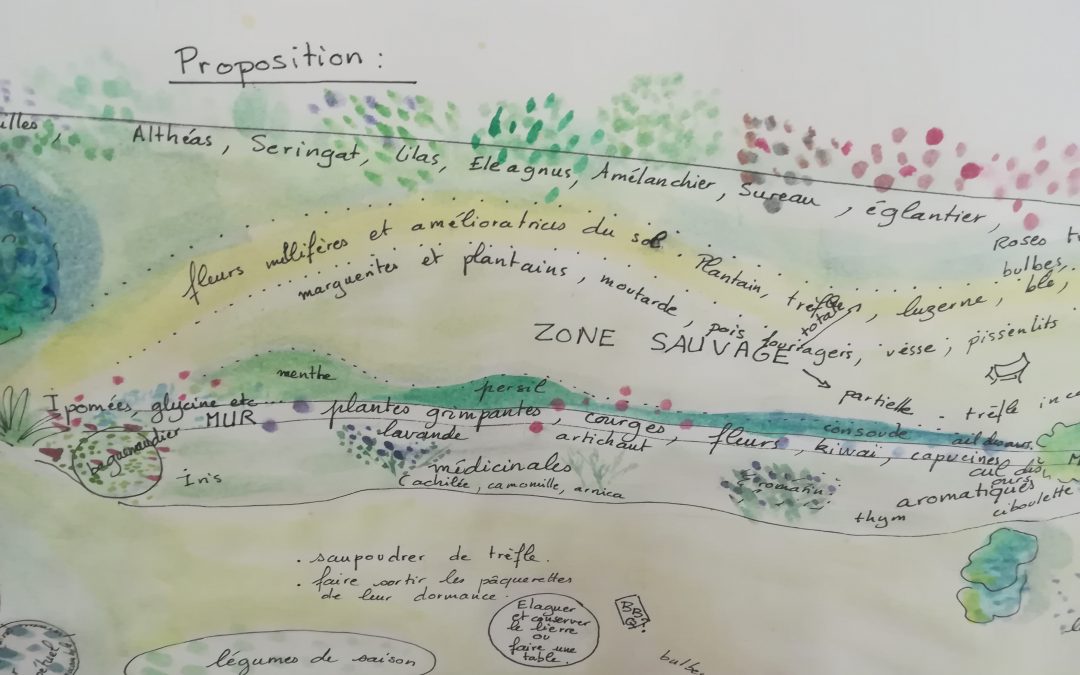 Proposition :
illes, Althéas, Seringat, Lilas, Eleagnus, Amélanchier, Sureau, églantier,
Roses
bulbes,
fleurs mellifères et amélioratrices du sol Plantain, trèfle, luzerne, blé,
marguerites et plantains, moutarde, pois fourragers, vesse, pissenlits
ZONE SAUVAGE
totale
partielle - trèfle
menthe
persil
consoude ail des ours
Ipomées, glycine etc
MUR
plantes grimpantes, courges, fleurs, kiwaï, capucines
baguenaudier
Iris
lavande
artichaut
médicinales
(achilée, camomille, arnica
romarin
ail des ours
aromatiques
ciboulette
thym
. saupoudrer de trèfle.
. faire sortir les pâquerettes
de leur dormance.
Elaguer
et conserver
le lierre
ou
faire une
table.
légumes de saison
bulbes